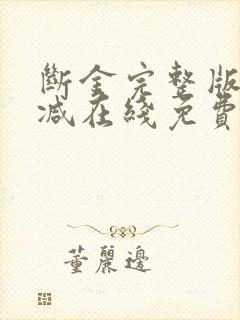 斷金完整版
減在綫免費
董麗邊